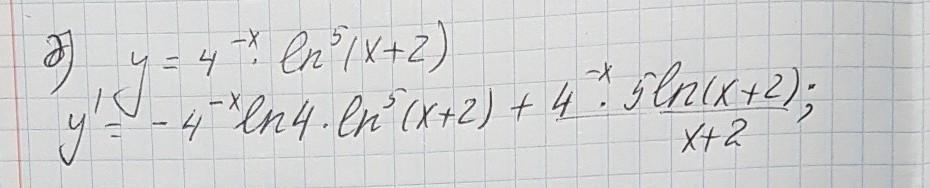 д) y = 4^{-x} · ln^5(x+2)
y' = -4^{-x} ln4 · ln^5(x+2) + \frac{4^{-x} · 5ln(x+2)}{x+2};